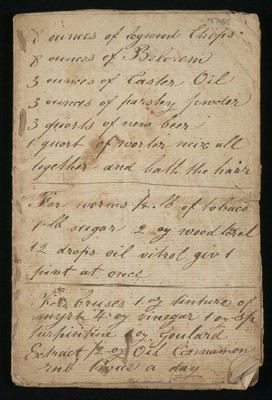 8 ounces of logwood Chips
8 ounces of
3 ounces of Caster Oil
3 ounces of parsley
3 quarts of new beer
1 quart of worter mix all
together and bath the hair
For worms ½ lb of tobaco
1 lb sugar 2 oz
12 drops oil vitrol giv 1
pint at once
For bruses 1 oz tinture of
myrh ½ oz vinegar 1 oz sp
turpintine 1 oz Goulard
Extract ½ oz Oil Cinnamon
rub twice a day